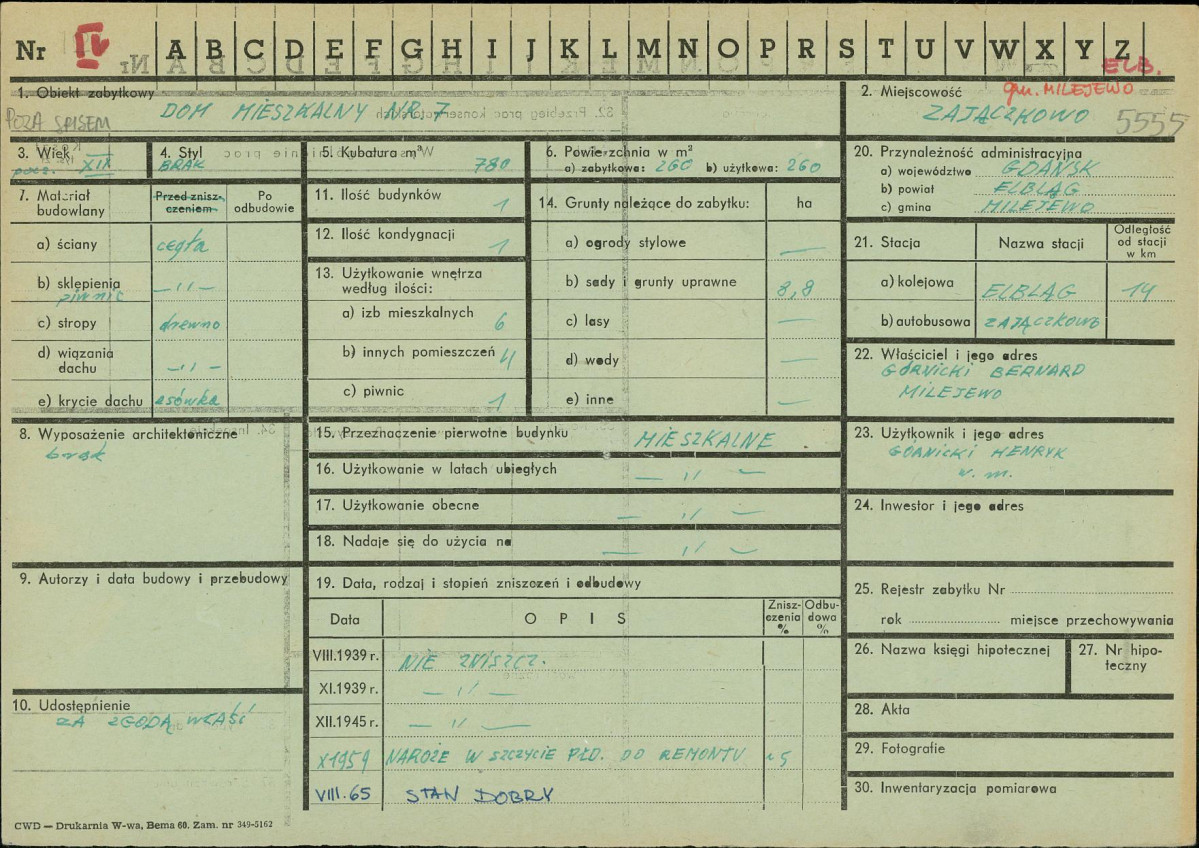 Nr IV A B C D E F G H I J K L M N O P R S T U V W X Y Z
ELB.
1. Obiekt zabytkowy
DOM MIESZKALNY NR 7
POZA SPISEM
2. Miejscowość
gm. MILEJEWO
ZAJĄCZKOWO 5555
3. Wiek
pocz. XIX
4. Styl
BRAK
5. Kubatura m³
780
6. Powierzchnia w m²
a) zabytkowa: 260 b) użytkowa: 260
20. Przynależność administracyjna
a) województwo GDAŃSK
b) powiat ELBLĄG
c) gmina MILEJEWO
7. Materiał budowlany
Przed zniszczeniem
Po odbudowie
a) ściany cegła
b) sklepienia piwnic —〃—
c) stropy drewno
d) wiązania dachu —〃—
e) krycie dachu esówka
11. Ilość budynków 1
12. Ilość kondygnacji 1
13. Użytkowanie wnętrza według ilości:
a) izb mieszkalnych 6
b) innych pomieszczeń 4
c) piwnic 1
14. Grunty należące do zabytku: ha
a) ogrody stylowe —
b) sady i grunty uprawne 8,8
c) lasy —
d) wody —
e) inne —
21. Stacja Nazwa stacji Odległość od stacji w km
a) kolejowa ELBLĄG 14
b) autobusowa ZAJĄCZKOWO
22. Właściciel i jego adres
GÓRNICKI BERNARD
MILEJEWO
8. Wyposażenie architektoniczne
brak
15. Przeznaczenie pierwotne budynku MIESZKALNE
16. Użytkowanie w latach ubiegłych —〃—
17. Użytkowanie obecne —〃—
18. Nadaje się do użycia na —〃—
23. Użytkownik i jego adres
GÓRNICKI HENRYK
w. m.
24. Inwestor i jego adres
9. Autorzy i data budowy i przebudowy
19. Data, rodzaj i stopień zniszczeń i odbudowy
Data OPIS Zniszczenia % Odbudowa %
VIII.1939 r. NIE ZNISZCZ.
XI.1939 r. —〃—
XII.1945 r. —〃—
X 1959 NAROŻE W SZCZYCIE PŁD. DO REMONTU 15
VIII.65 STAN DOBRY
25. Rejestr zabytku Nr
rok miejsce przechowywania
26. Nazwa księgi hipotecznej
27. Nr hipoteczny
10. Udostępnienie
ZA ZGODĄ WŁAŚĆ
28. Akta
29. Fotografie
30. Inwentaryzacja pomiarowa
CWD — Drukarnia W-wa, Bema 60. Zam. nr 349-5162